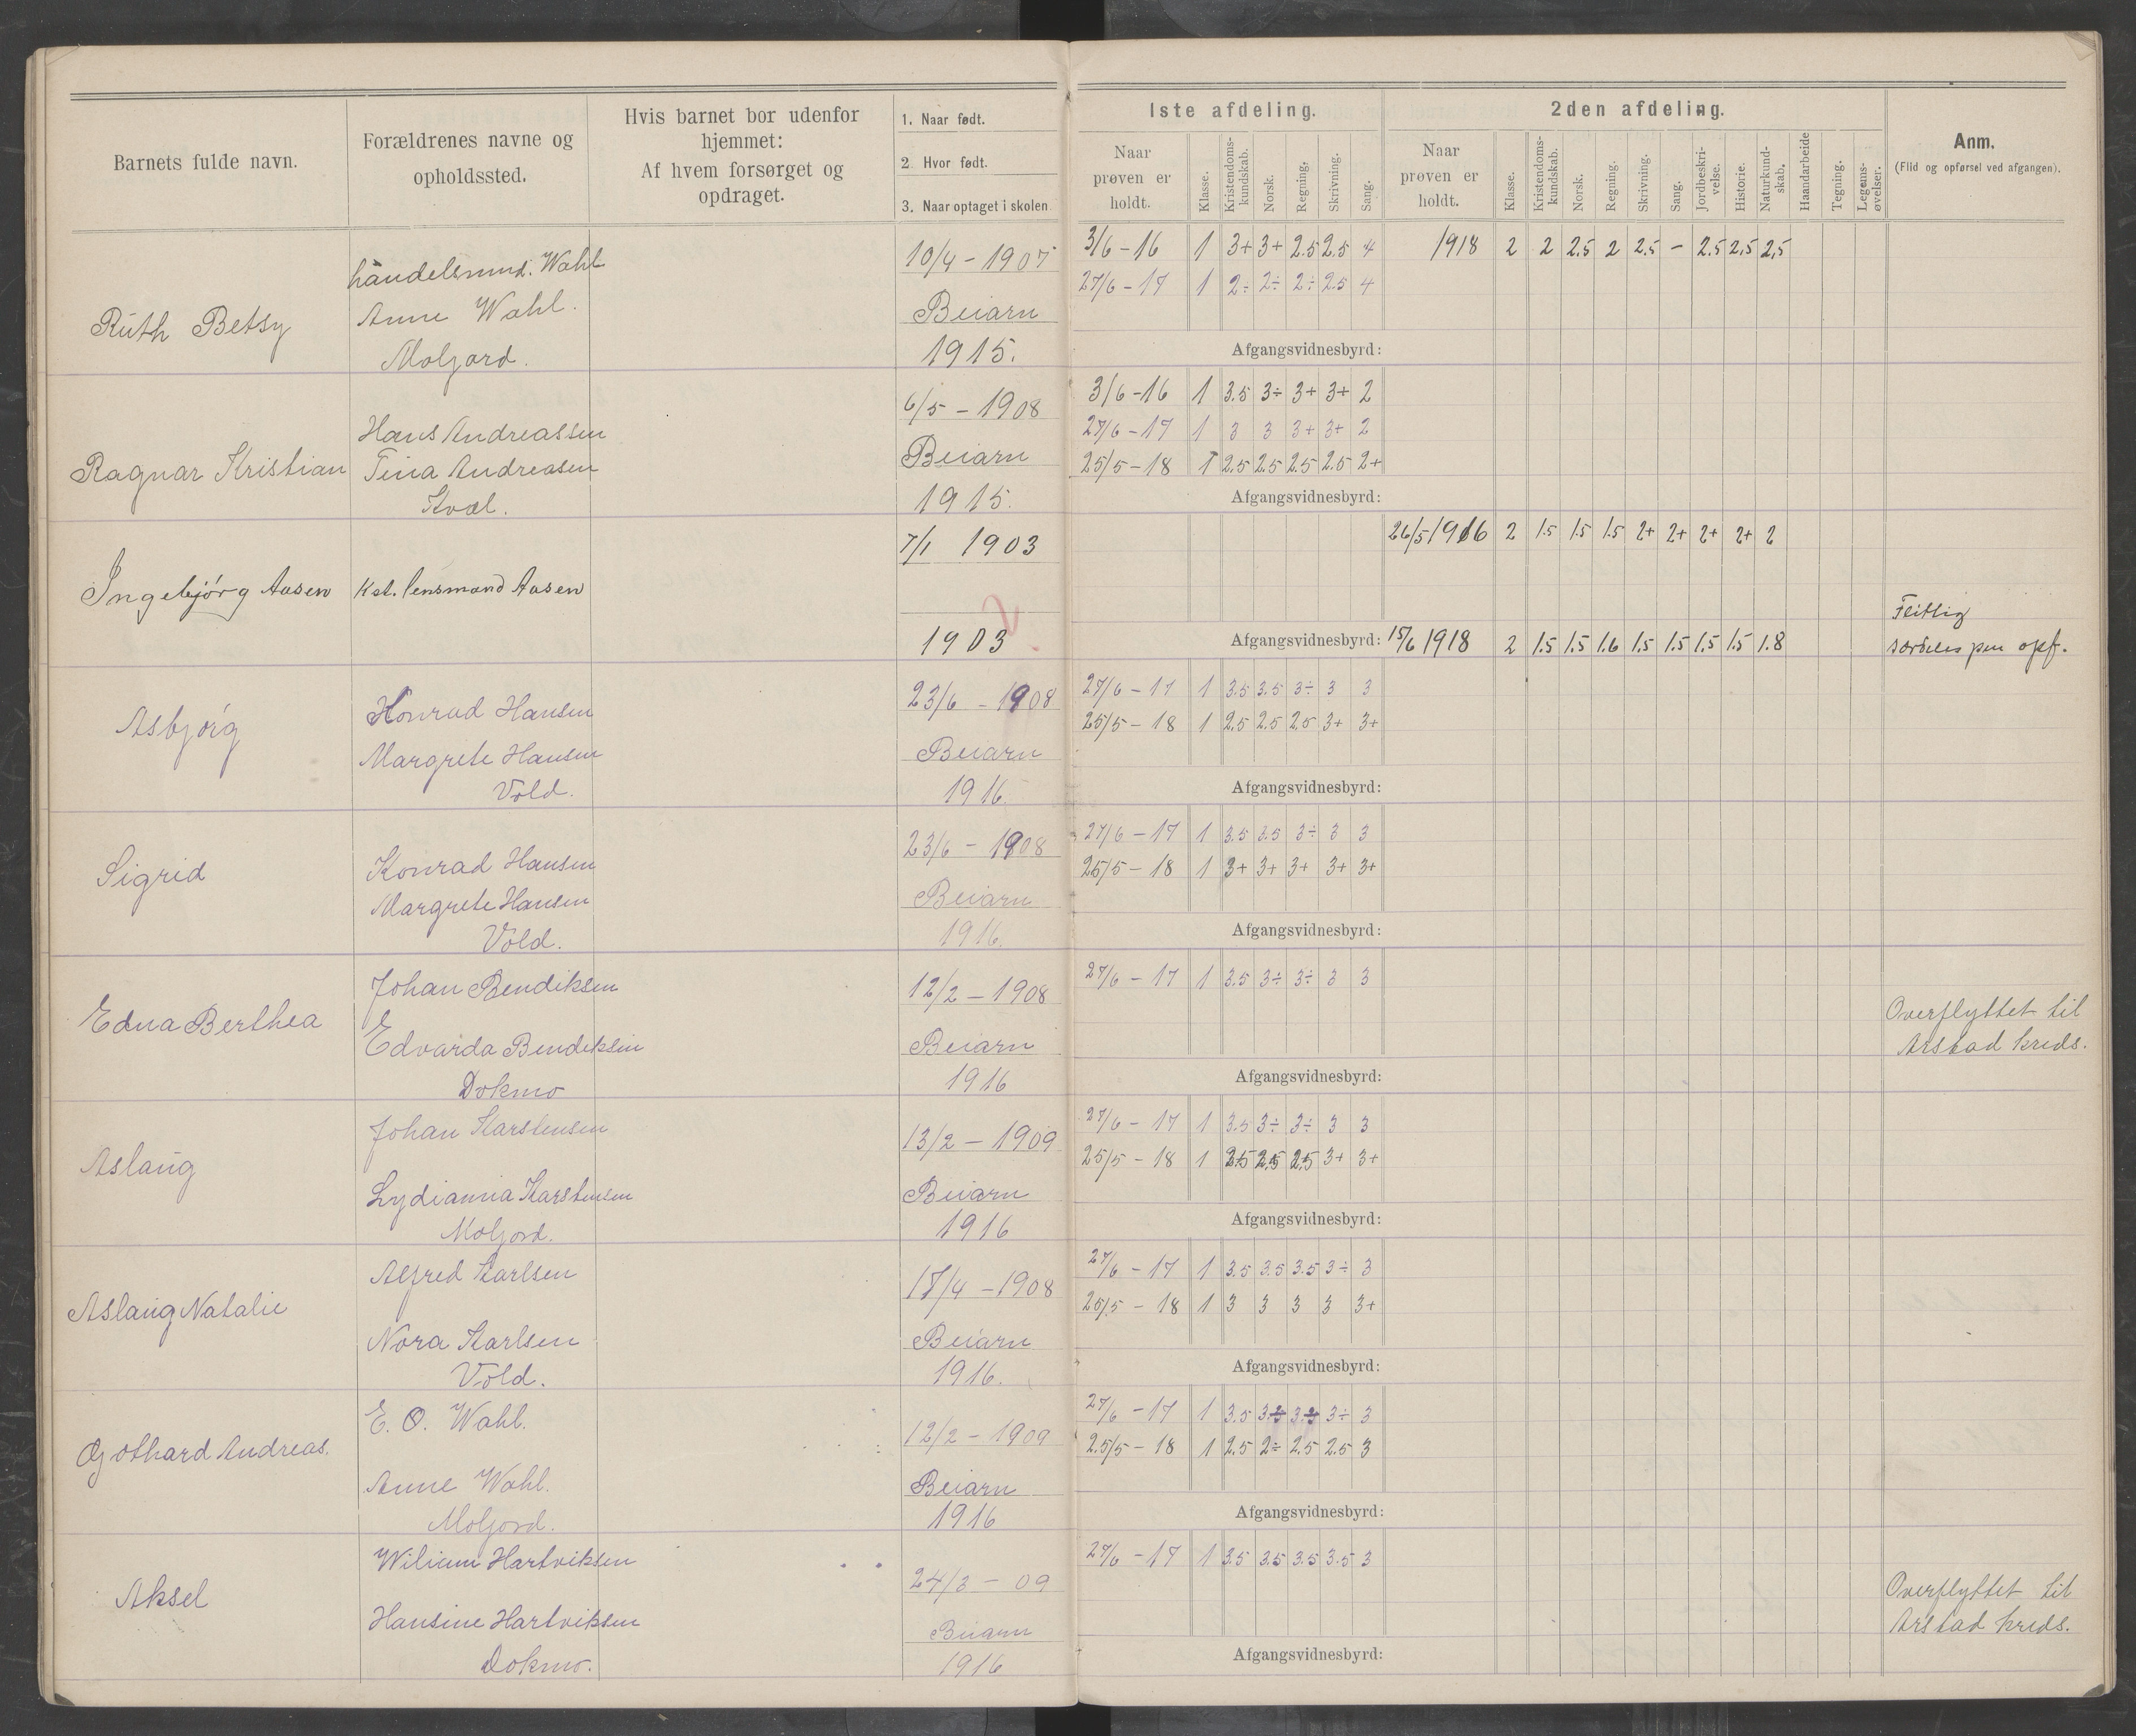 Barnets fulde navn.
Forældrenes navne og
opholdssted.
Hvis barnet bor udenfor
hjemmet:
Af hvem forsørget og
opdraget.
1. Naar født.
2. Hvor født.
3. Naar optaget i skolen
1ste afdeling.
2den afdeling.
Naar
prøven er
holdt.
Klasse.
Kristendoms-
kundskab.
Norsk.
Regning,
Skrivning.
Sang.
Naar
prøven er
holdt.
Klasse.
Kristendoms-
kundskab.
Norsk.
Regning.
Skrivning.
Sang.
Jordbeskri-
velse.
Historie.
Naturkund-
skab.
Haandarbeide
Tegning.
Legems-
øvelser.
Anm.
(Flid og opførsel ved afgangen).
Ruth Betsy
handelsmnd. Wahl
Anne Wahl.
Moljord.
10/4 - 1907
Beiarn
1915.
3/6 - 16 1 3+ 3+ 2.5 2.5 4 1918 2 2 2.5 2 2.5 - 2.5 2.5 2,5
27/6 - 17 1 2÷ 2÷ 2÷ 2.5 4
Afgangsvidnesbyrd:
Ragnar Kristian
Hans Andreassen
Tina Andreasen
Kvæl.
6/5 - 1908
Beiarn
1915.
3/6 - 16 1 3.5 3÷ 3+ 3+ 2
27/6 - 17 1 3 3 3+ 3+ 2
25/5 - 18 1 2.5 2.5 2.5 2.5 2+
Afgangsvidnesbyrd:
Ingebjörg Aasen
Kst. lensmand Aasen
7/1 1903
1903
26/5 1916 2 1.5 1.5 1.5 2+ 2+ 2+ 2+ 2
Afgangsvidnesbyrd: 15/6 1918 2 1.5 1.5 1.6 1.5 1.5 1.5 1.5 1.8
Flittig
særdeles pen opf.
Asbjörg
Konrad Hansen
Margrete Hansen
Vold.
23/6 - 1908
Beiarn
1916
27/6 - 17 1 3.5 3.5 3÷ 3 3
25/5 - 18 1 2.5 2.5 2.5 3+ 3+
Afgangsvidnesbyrd:
Sigrid
Konrad Hansen
Margrete Hansen
Vold.
23/6 - 1908
Beiarn
1916.
27/6 - 17 1 3.5 3.5 3÷ 3 3
25/5 - 18 1 3+ 3+ 3+ 3+ 3+
Afgangsvidnesbyrd:
Edna Berthea
Johan Bendiksen
Edvarda Bendiksen
Dokmo
12/2 - 1908
Beiarn
1916
27/6 - 17 1 3.5 3÷ 3÷ 3 3
Afgangsvidnesbyrd:
Overflyttet til
Arstad kreds.
Aslaug
Johan Karstensen
Lydianna Karstensen
Moljord.
13/2 - 1909
Beiarn
1916
27/6 - 17 1 3.5 3÷ 3÷ 3 3
25/5 - 18 1 2.5 2.5 2.5 3+ 3+
Afgangsvidnesbyrd:
Aslaug Natalie
Alfred Karlsen
Nora Karlsen
Vold.
17/4 - 1908
Beiarn
1916.
27/6 - 17 1 3.5 3.5 3.5 3÷ 3
25/5 - 18 1 3 3 3 3 3+
Afgangsvidnesbyrd:
Gothard Andreas.
E. O. Wahl.
Anne Wahl.
Moljord.
12/2 - 1909
Beiarn
1916
27/6 - 17 1 3.5 3÷ 3÷ 3÷ 3
25/5 - 18 1 2.5 2÷ 2.5 2.5 3
Afgangsvidnesbyrd:
Aksel
Wilium Hartviksen
Hansine Hartviksen
Dokmo.
24/3 - 09
Beiarn
1916
27/6 - 17 1 3.5 3.5 3.5 3.5 3
Afgangsvidnesbyrd:
Overflyttet til
Arstad kreds.